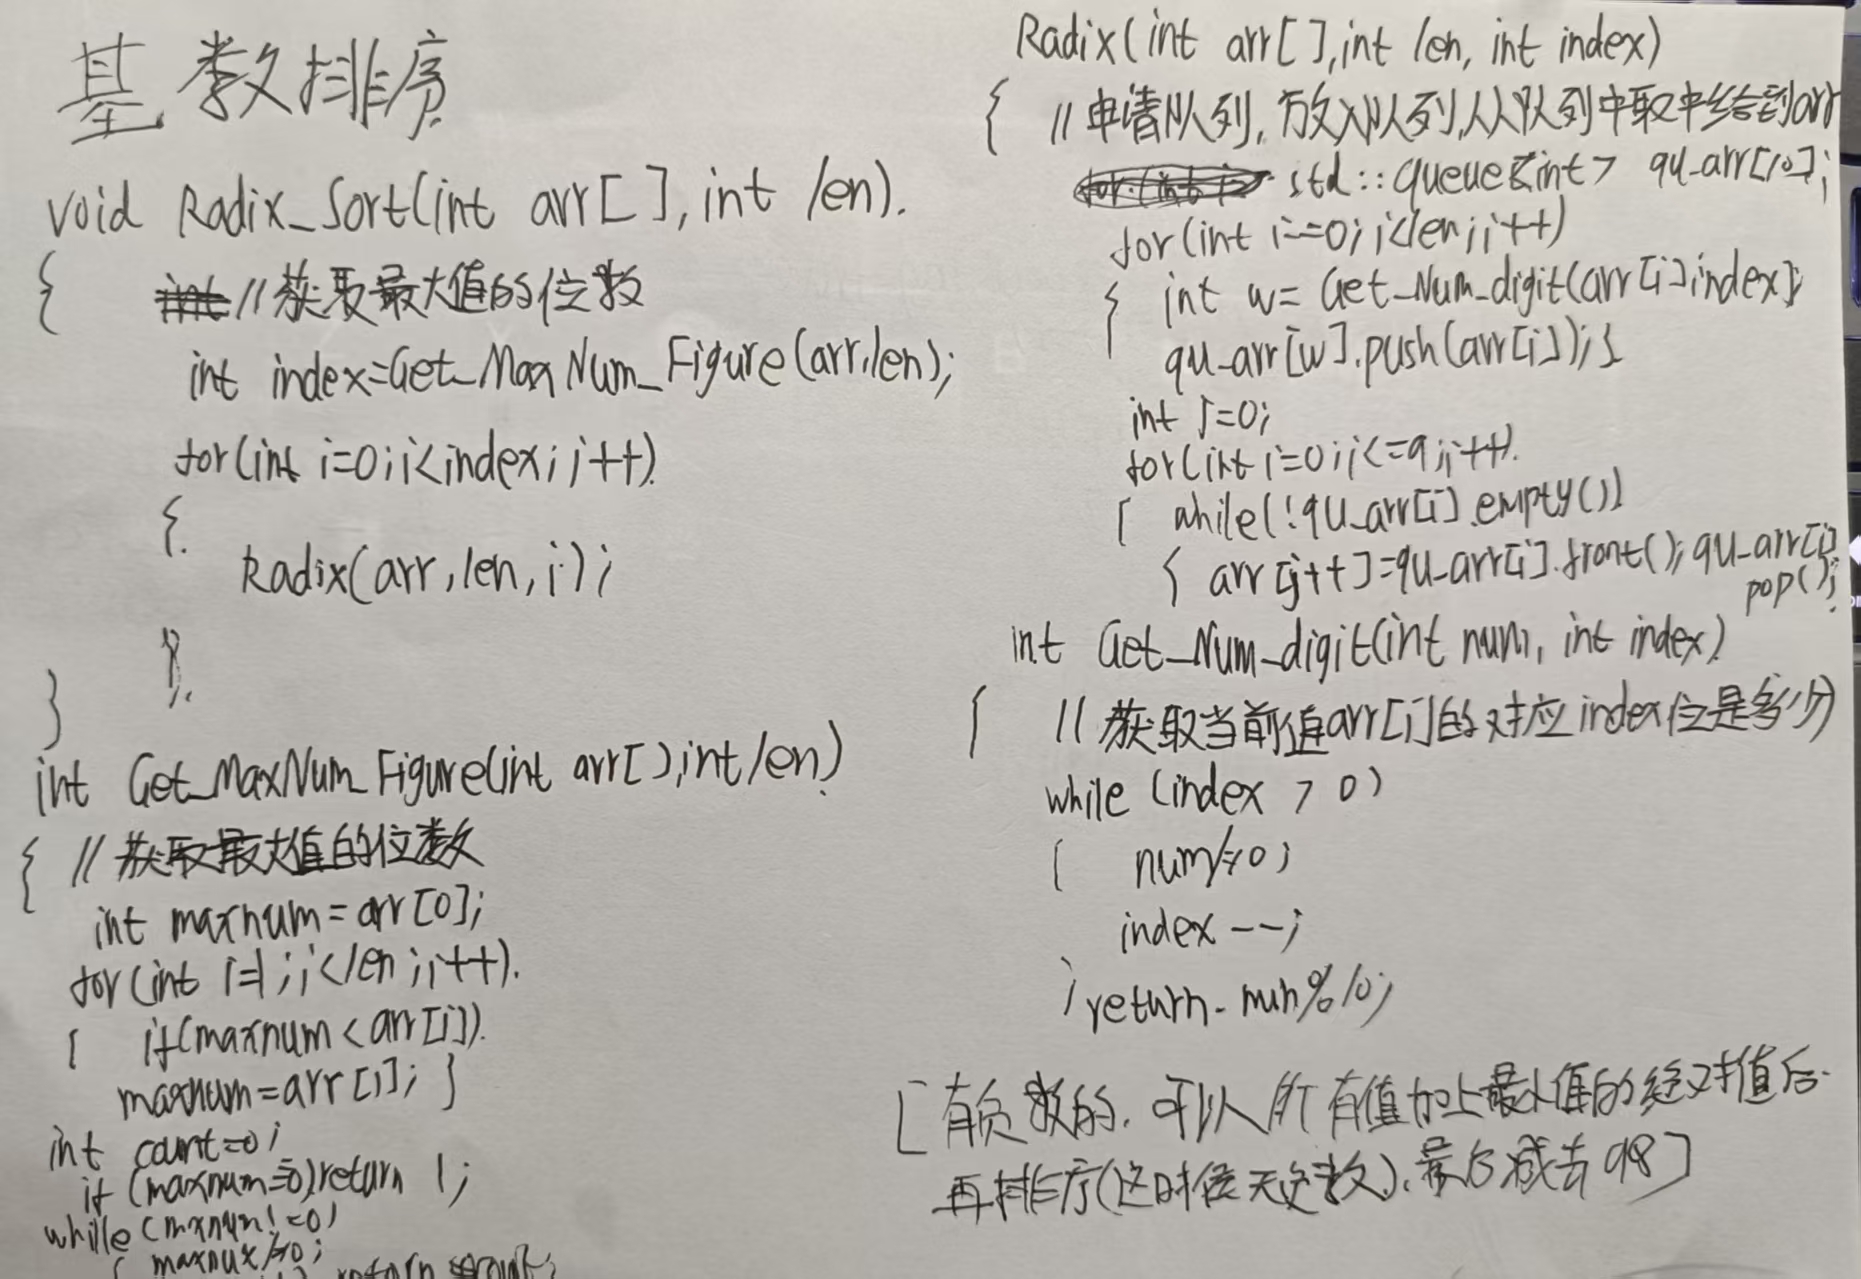 基数排序
void Radix_Sort(int arr[],int len).
{
int//获取最大值的位数
int index=Get_MaxNum_Figure(arr,len);
for(int i=0;i<index;i++)
{
Radix(arr,len,i);
}
}
int Get_MaxNum_Figure(int arr[],int len)
{ //获取最大值的位数
int maxnum=arr[0];
for(int i=1;i<len;i++).
{ if(maxnum<arr[i]).
maxnum=arr[i]; }
int count=0;
if(maxnum==0)return 1;
while(maxnum!=0)
{ maxnux/=10;
return count;
Radix(int arr[],int len, int index)
{ //申请队列,放入队列,从队列中取中给到arr
for(int i= std::queue<int> qu_arr[10];
for(int i=0;i<len;i++)
{ int w= Get_Num_digit(arr[i]index);
qu_arr[w].push(arr[i]);}
int j=0;
for(int i=0;i<=9;i++).
{ while(!qu_arr[i].empty())
{ arr[j++]=qu_arr[i].front();qu_arr[i]
pop();
int Get_Num_digit(int num, int index)
{ //获取当前值arr[i]的对应index位是多少
while (index > 0)
{ num/=10;
index --;
}return num%10;
[有负数的,可以所有值加上最小值的绝对值后
再排序(这时候无负数),最后减去98]